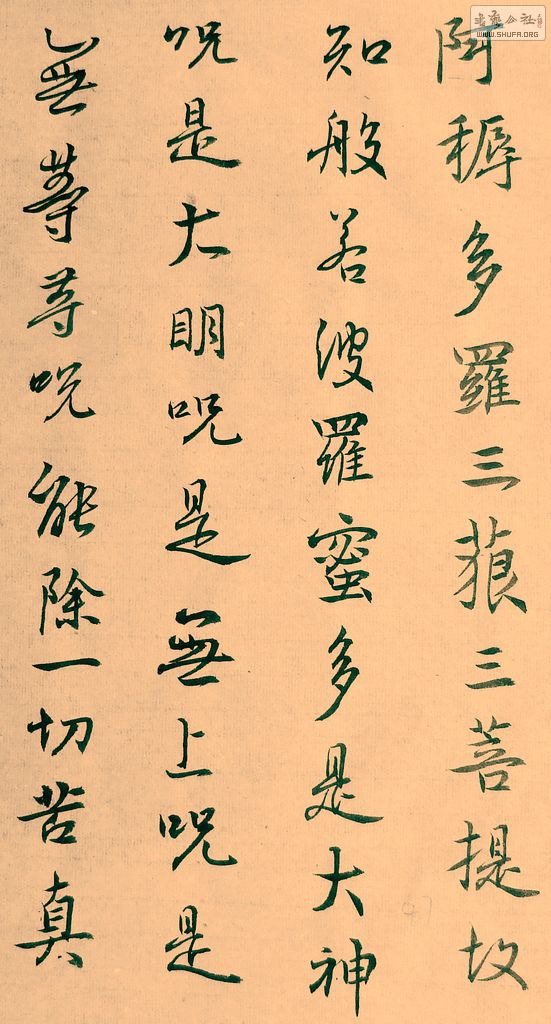 阿耨多羅三藐三菩提故
知般若波羅蜜多是大神
咒是大明咒是無上咒是
無等等咒能除一切苦真
書法公社
WWW.SHUFA.ORG